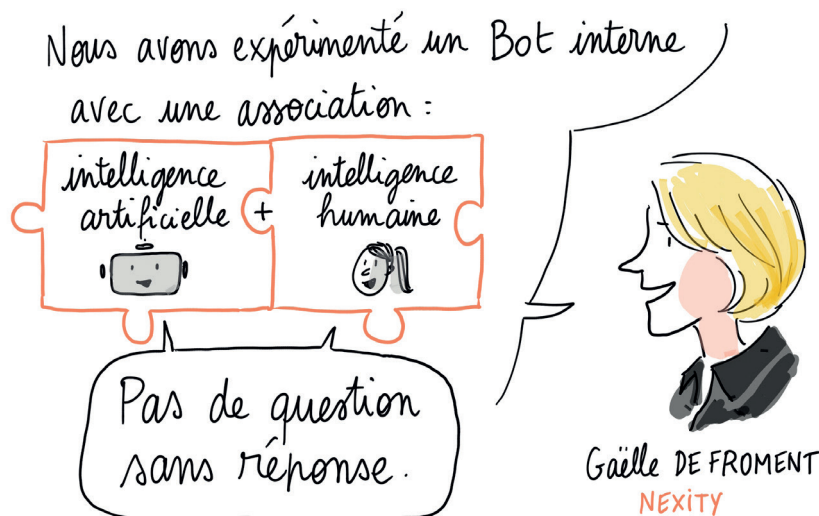 Nous avons expérimenté un Bot interne
avec une association :
intelligence
artificielle
+
intelligence
humaine
Pas de question
sans réponse.
Gaëlle DE FROMENT
NEXiTY